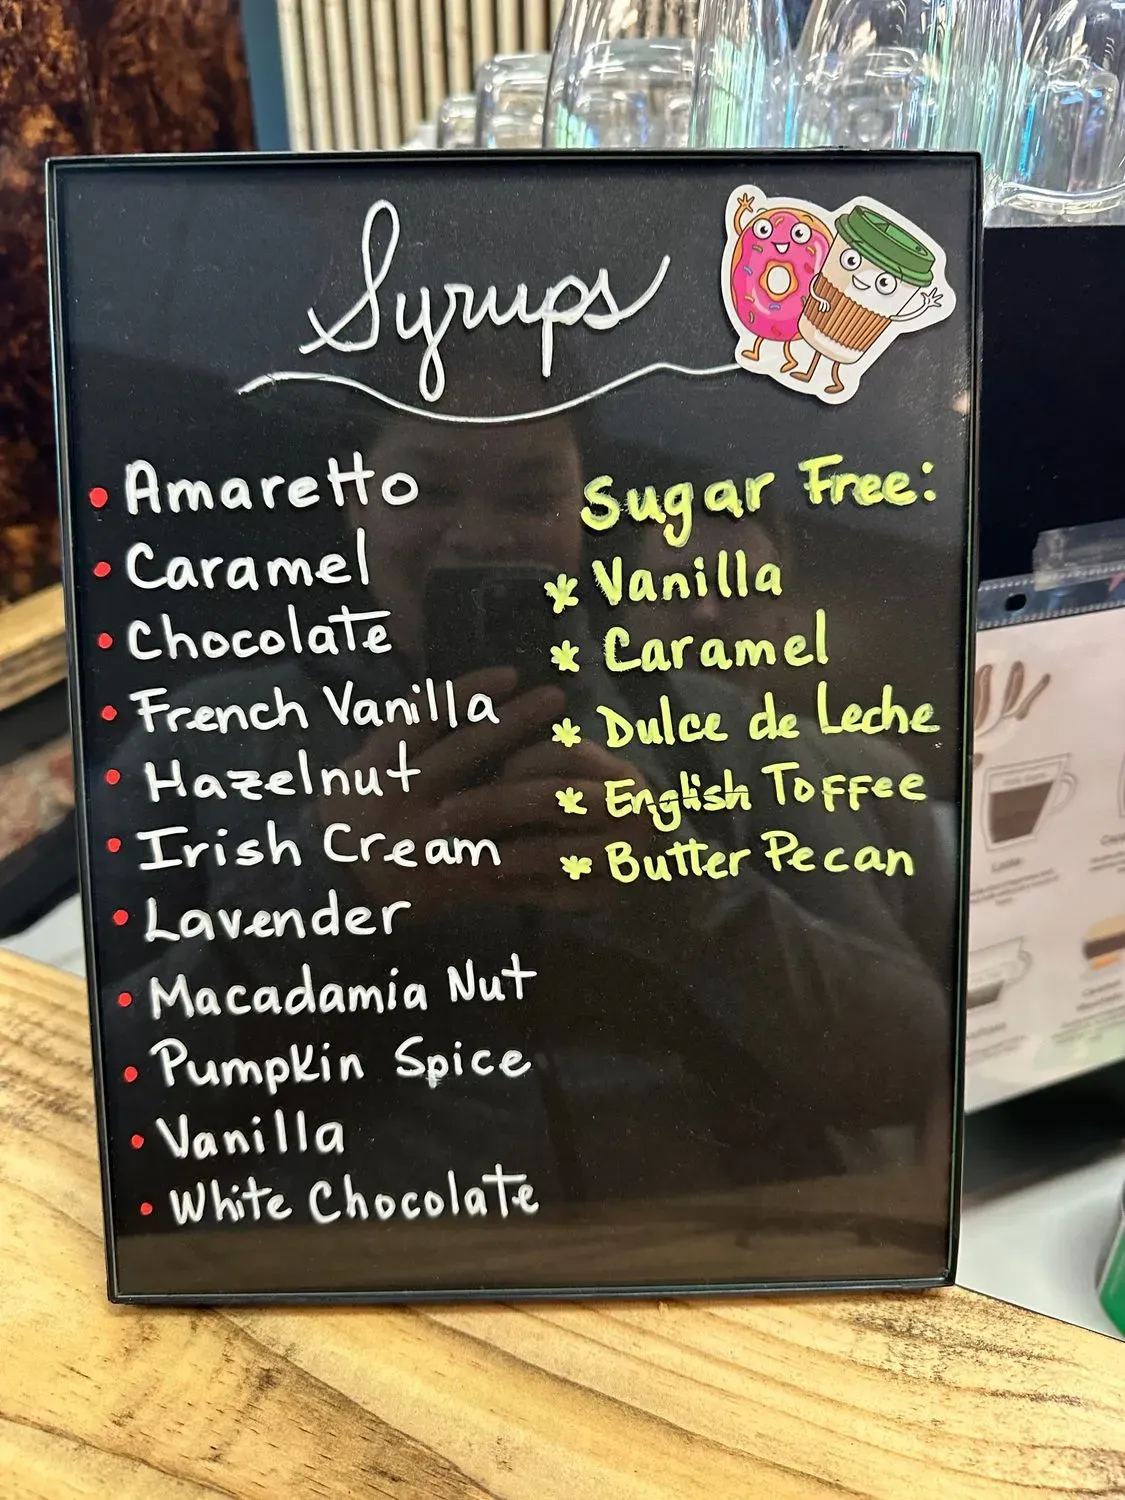 Syrups
• Amaretto
• Caramel
• Chocolate
• French Vanilla
• Hazelnut
• Irish Cream
• Lavender
• Macadamia Nut
• Pumpkin Spice
• Vanilla
• White Chocolate
Sugar Free:
* Vanilla
* Caramel
* Dulce de Leche
* English Toffee
* Butter Pecan